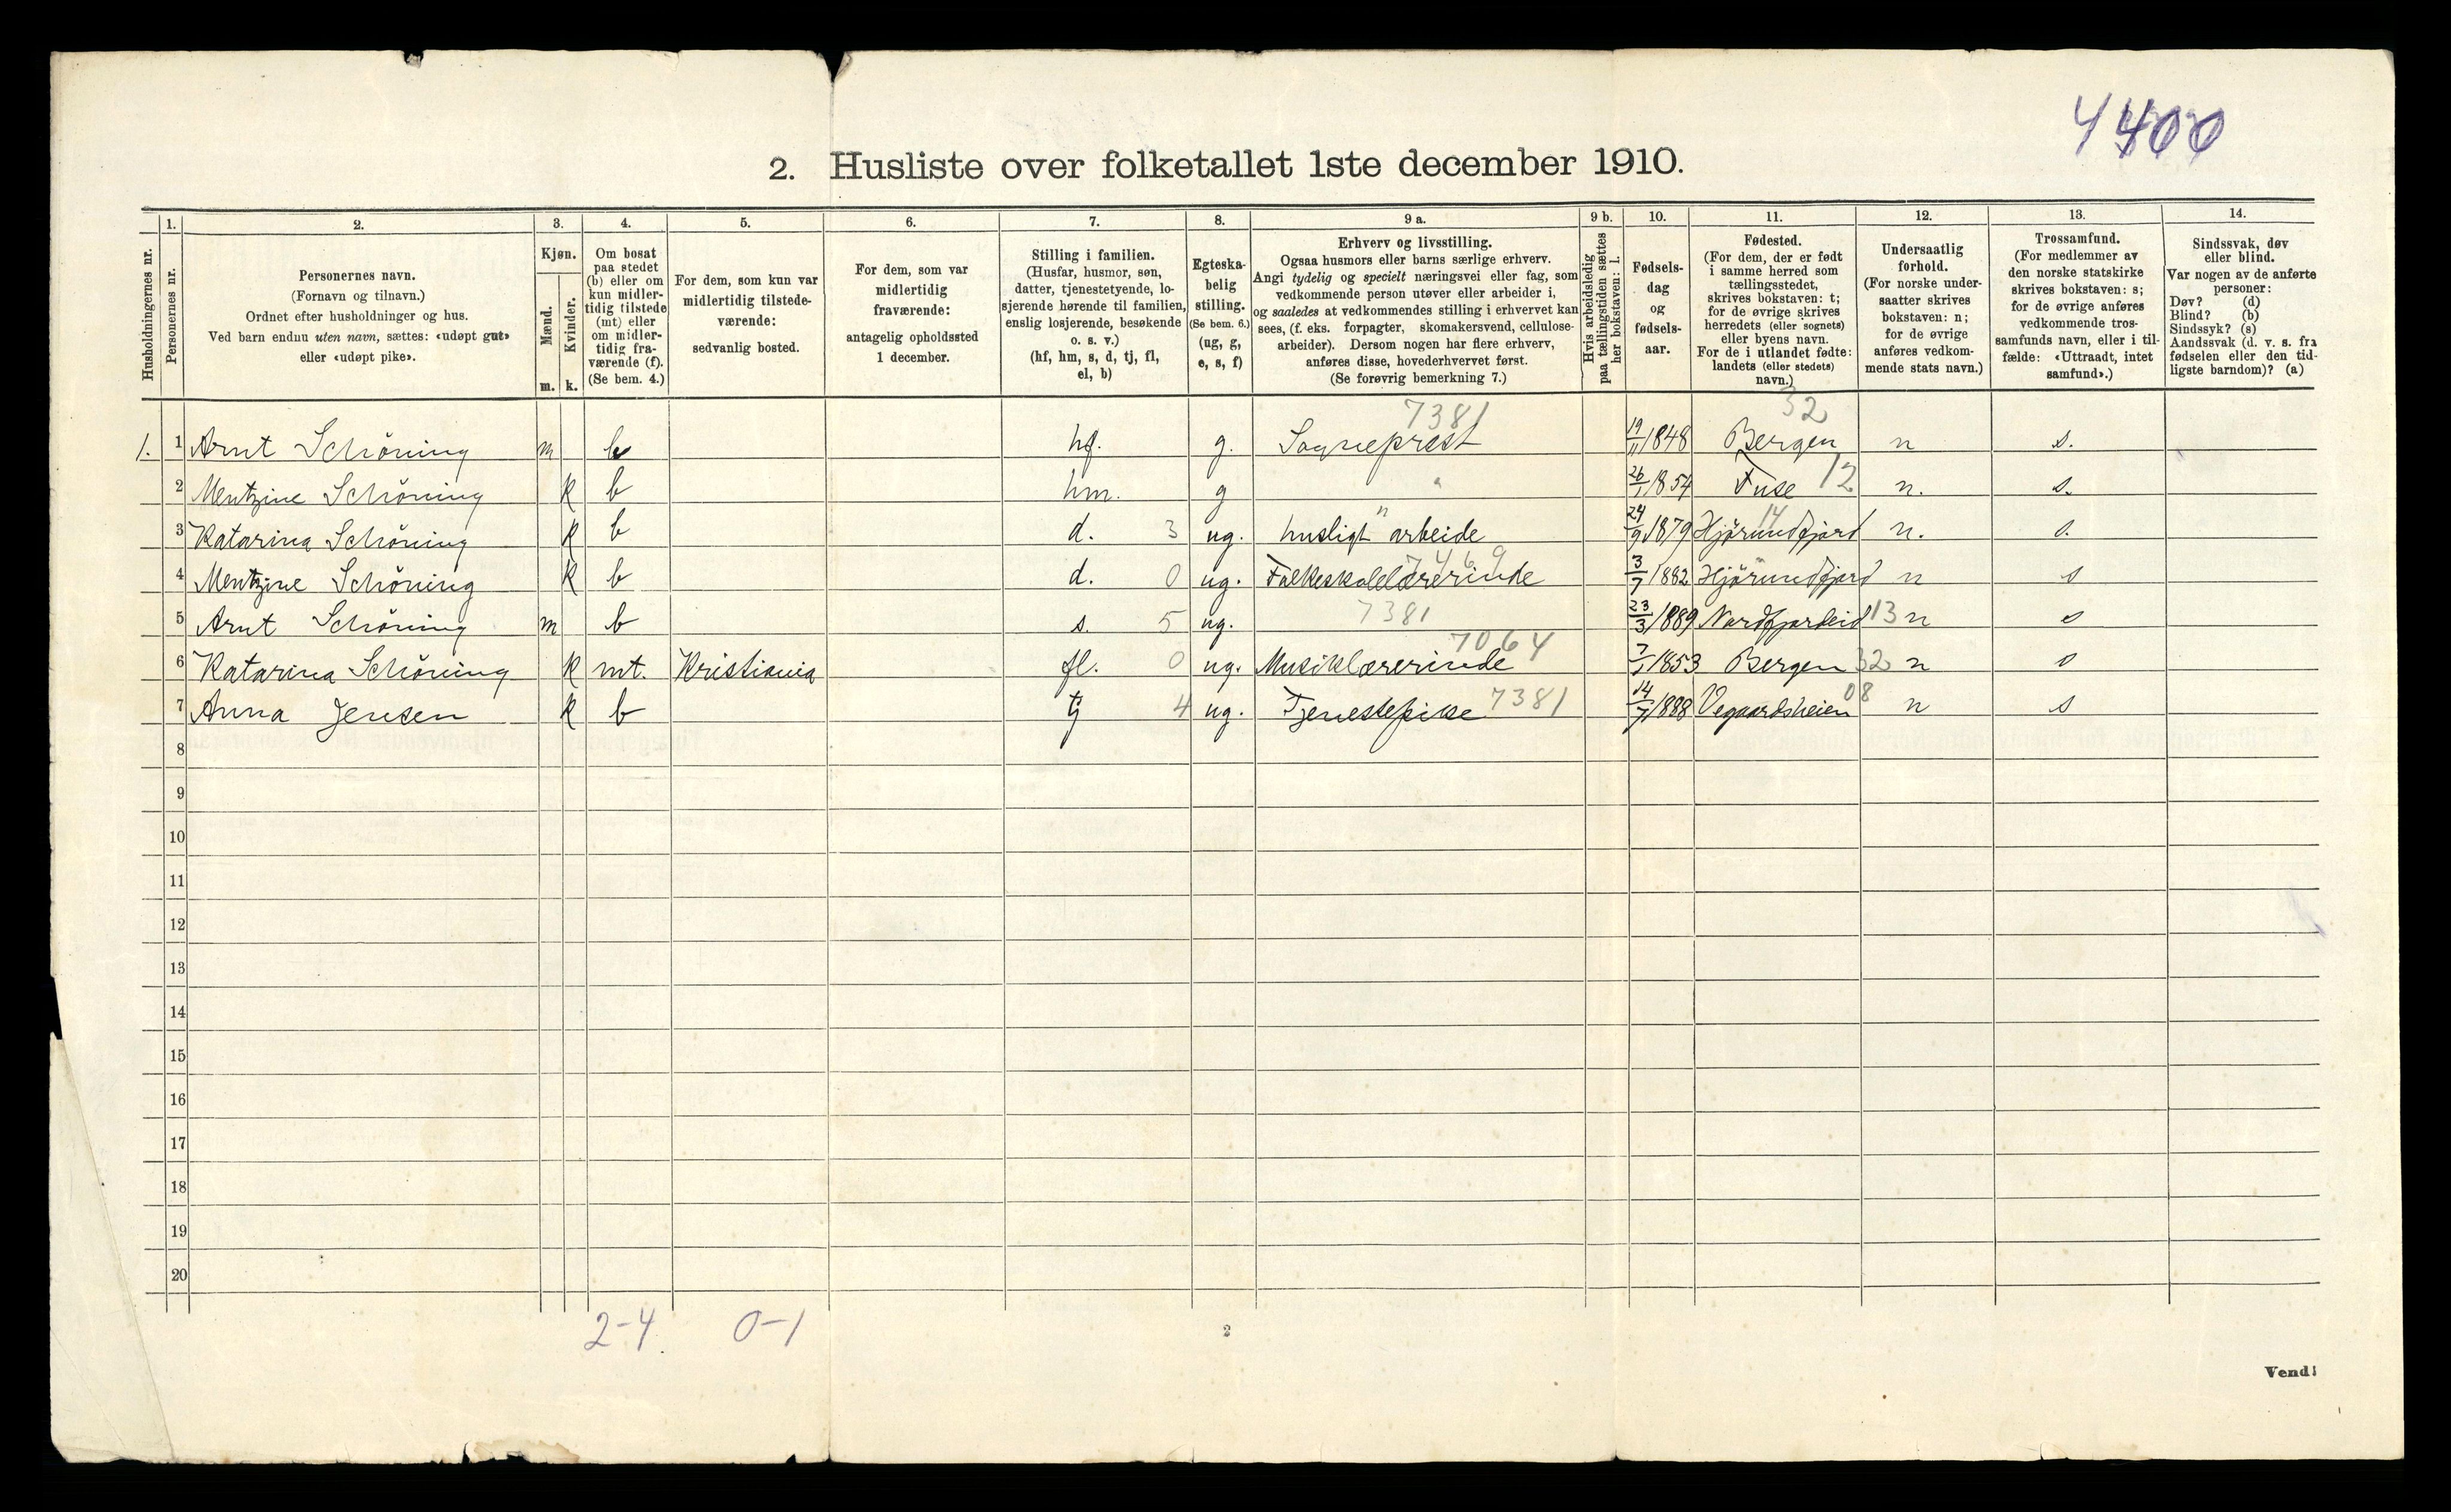 4400
2. Husliste over folketallet 1ste december 1910.
Husholdningernes nr.
1. Personernes nr.
2. Personernes navn.
(Fornavn og tilnavn.)
Ordnet efter husholdninger og hus.
Ved barn endnu uten navn, sættes: «udøpt gut»
eller «udøpt pike».
3. Kjøn.
Mænd. m.
Kvinder. k.
4. Om bosat
paa stedet
(b) eller om
kun midler-
tidig tilstede
(mt) eller
om midler-
tidig fra-
værende (f).
(Se bem. 4.)
5. For dem, som kun var
midlertidig tilstede-
værende:
sedvanlig bosted.
6. For dem, som var
midlertidig
fraværende:
antagelig opholdssted
1 december.
7. Stilling i familien.
(Husfar, husmor, søn,
datter, tjenestetyende, lo-
sjerende hørende til familien,
enslig losjerende, besøkende
o. s. v.)
(hf, hm, s, d, tj, fl,
el, b)
8. Egteska-
belig
stilling.
(Se bem. 6.)
(ug, g,
e, s, f)
9 a. Erhverv og livsstilling.
Ogsaa husmors eller barns særlige erhverv.
Angi tydelig og specielt næringsvei eller fag, som
vedkommende person utøver eller arbeider i,
og saaledes at vedkommendes stilling i erhvervet kan
sees, (f. eks. forpagter, skomakersvend, cellulose-
arbeider). Dersom nogen har flere erhverv,
anføres disse, hovederhvervet først.
(Se forøvrig bemerkning 7.)
9 b. Hvis arbeidsledig
paa tællingstiden sættes
her bokstaven: l.
10. Fødsels-
dag
og
fødsels-
aar.
11. Fødested.
(For dem, der er født
i samme herred som
tællingsstedet,
skrives bokstaven: t;
for de øvrige skrives
herredets (eller sognets)
eller byens navn.
For de i utlandet fødte:
landets (eller stedets)
navn.)
12. Undersaatlig
forhold.
(For norske under-
saatter skrives
bokstaven: n;
for de øvrige
anføres vedkom-
mende stats navn.)
13. Trossamfund.
(For medlemmer av
den norske statskirke
skrives bokstaven: s;
for de øvrige anføres
vedkommende tros-
samfunds navn, eller i til-
fælde: «Uttraadt, intet
samfund».)
14. Sindssvak, døv
eller blind.
Var nogen av de anførte
personer:
Døv? (d)
Blind? (b)
Sindssyk? (s)
Aandssvak (d. v. s. fra
fødselen eller den tid-
ligste barndom)? (a)
7381 32
1. 1 Arnt Schöning m b hf. g. Sogneprest 19/11 1848 Bergen n s.
2 Mentzine Schöning k b hm. g " 26/1 1854 Fuse 12 n. s.
3 Katarina Schöning k b d. 3 ug. husligt arbeide " 24/9 1879 Hjörundfjord 14 n. s.
4 Mentzine Schöning k b d. 0 ug. Folkeskolelærerinde 7469 3/7 1882 Hjörundfjord " n s
5 Arnt Schöning m b s. 5 ug. 7381 23/3 1889 Nordfjordeid 13 n s
6 Katarina Schöning k mt. Kristiania fl. 0 ug. Musiklærerinde 7064 7/1 1853 Bergen 32 n s
7 Anna Jensen k b tj 4 ug. Tjenestepike 7381 14/7 1888 Vegaardsheien 08 n s
8
9
10
11
12
13
14
15
16
17
18
19
20
2-4 0-1
2
Vend!